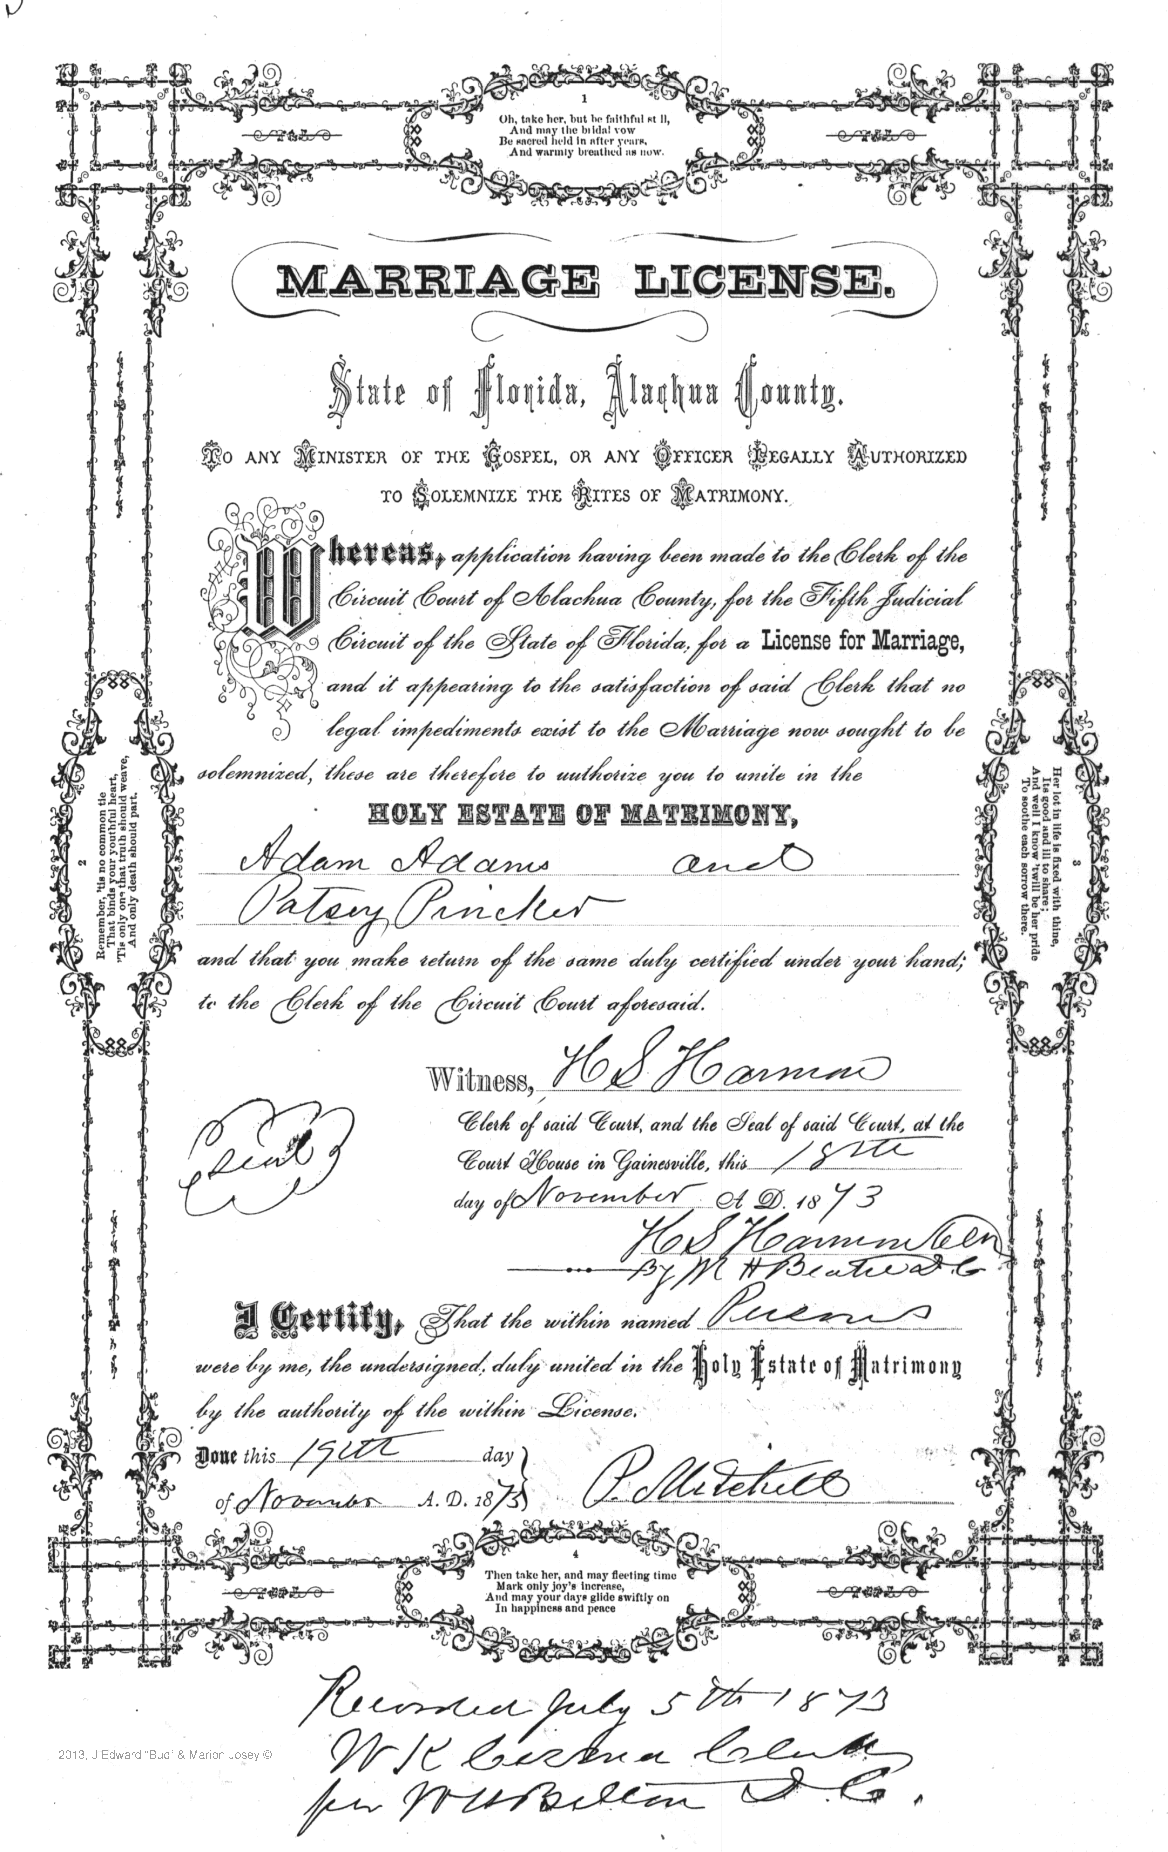 1
Oh, take her, but be faithful st ll,
And may the bridal vow
Be sacred held in after years,
And warmly breathed as now.
MARRIAGE LICENSE.
State of Florida, Alachua County.
TO ANY MINISTER OF THE GOSPEL, OR ANY OFFICER LEGALLY AUTHORIZED
TO SOLEMNIZE THE RITES OF MATRIMONY.
Whereas, application having been made to the Clerk of the
Circuit Court of Alachua County, for the Fifth Judicial
Circuit of the State of Florida, for a License for Marriage,
and it appearing to the satisfaction of said Clerk that no
legal impediments exist to the Marriage now sought to be
solemnized, these are therefore to authorize you to unite in the
HOLY ESTATE OF MATRIMONY,
Adam Adams and
Patsey Pincker
and that you make return of the same duly certified under your hand;
to the Clerk of the Circuit Court aforesaid.
2
Remember, 'tis no common tie
That binds your youthful heart,
'Tis only one that truth should weave,
And only death should part.
3
Her lot in life is fixed with thine,
Its good and ill to share;
And well I know 'twill be her pride
To soothe each sorrow there.
Witness, H S Harmon
Clerk of said Court, and the Seal of said Court, at the
Court House in Gainesville, this 18th
day of November A. D. 1873
Seal
H S Harmon Clk
By M H Beatie D C
I Certify, That the within named Persons
were by me, the undersigned, duly united in the Holy Estate of Matrimony
by the authority of the within License.
Done this 19th day
of November A. D. 1873
P. Mitchell
4
Then take her, and may fleeting time
Mark only joy's increase,
And may your days glide swiftly on
In happiness and peace
Recorded July 5th 1873
W K Clerk
per W H Belton D C.
2013, J Edward "Bud" & Marion Josey ©